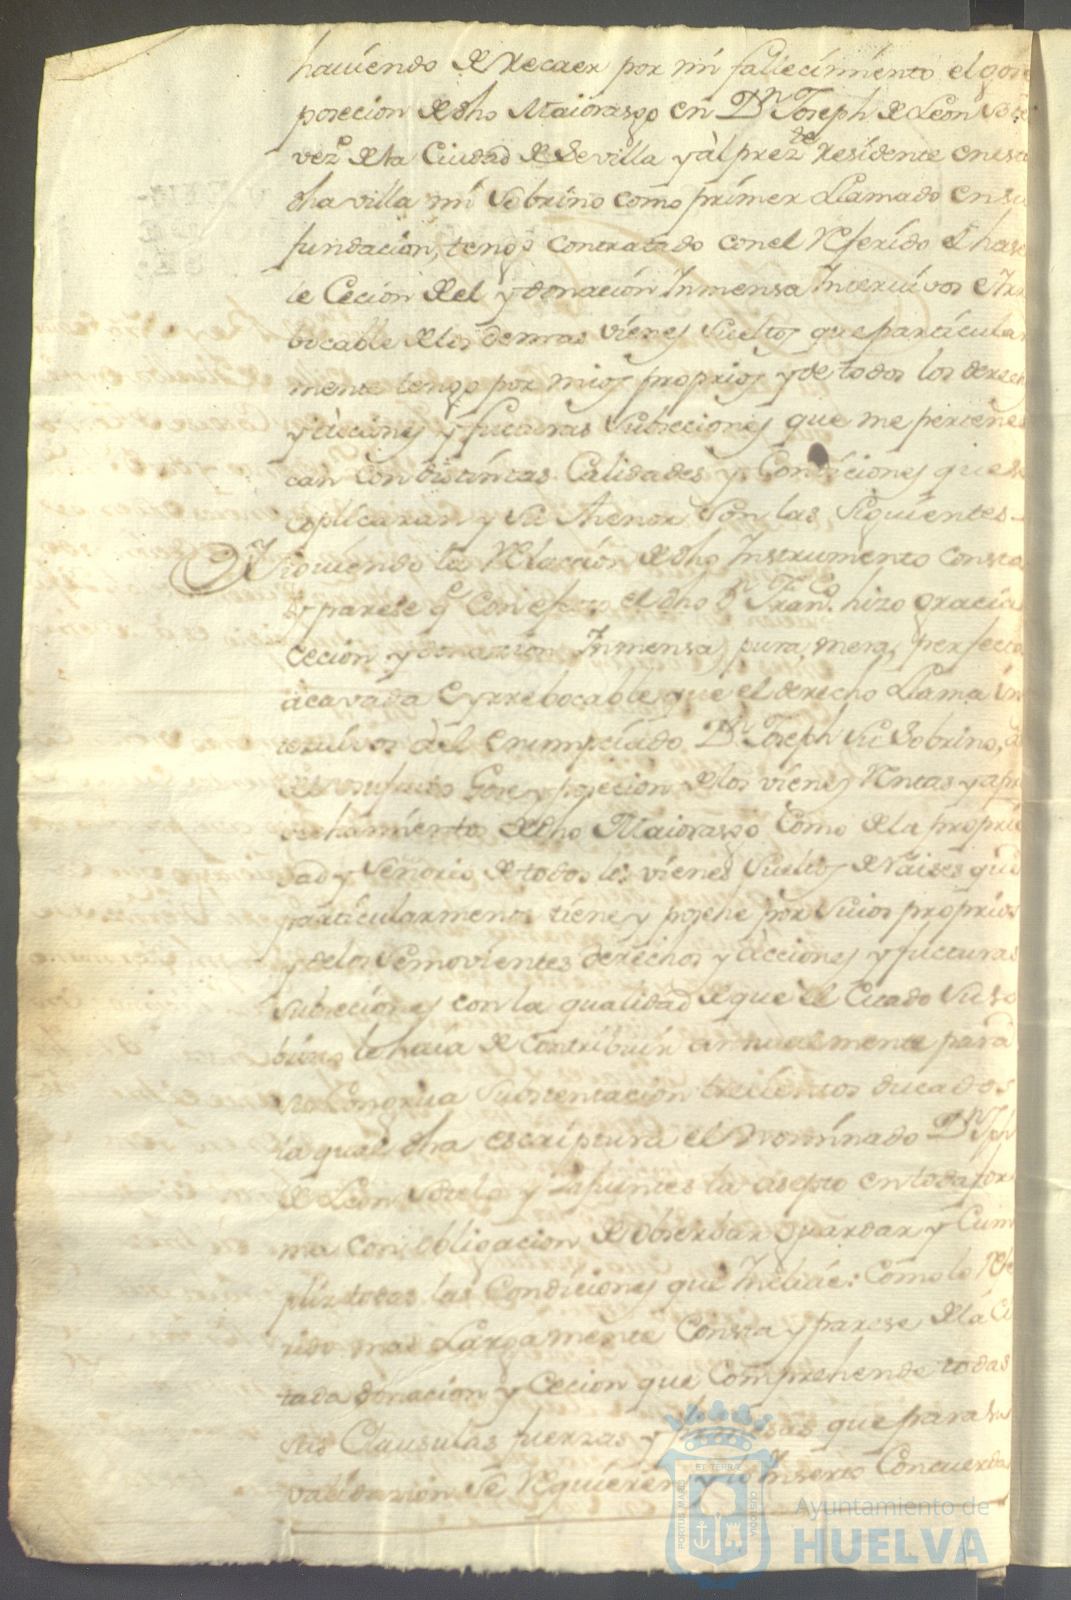 haviendo de Recaer por mi fallecimiento el gose
posecion de dho Maiorasgo en Dn. Joseph de Leon
vezº de la Ciudad de Sevilla y àl prezte Residente en esta
dha villa mi Sobrino como primer Llamado en su
fundacion, tengo contratado con el Referido el haser
le Cecion del y donacion Inmensa Intervivos e Irre
bocable de los demas vienes sueltos que particular
mente tengo por mios proprios y de todos los derech
y àcciones y futuras Subseciones que me pertenes
can con distintas Calidades y Condiciones que se
esplicaran y su thenor son las siguientes
Siguiendo la Relacion de dho Instrumento consta
y parese q con efecto el dho Dn Franco. hizo gracia
Cecion y donacion Inmensa, pura, mera, perfecta
acavada e yrrebocable que el derecho Llama in
tervivos àl enunpciado Dn Joseph su Sobrino, a
el usufructo Gose y posecion de los vienes Rentas y apro
vechamientos de dho Maiorasgo como de la proprie
dad y Señorio de todos los vienes sueltos de Raises que
particularmente tiene y posehe por suios proprios
y de los Semovientes derechos y àcciones y fucturas
subseciones con la qualidad de que el Citado su so
brino le haia de contribuir annualmente para
su Congrua Sustentacion trecientos ducados
la qual dha escriptura el nominado Dn Jph
de Leon Sotelo y Zapuntes la asepto en toda for
ma con obligacion de obserbar guardar y Cum
plir todas las Condiciones que Incluie: como lo Refe
rido mas Largamente Consta y parese de la Ci
tada donacion y Cecion que Comprehende todas
sus Clausulas fuerzas y firmesas que para su
validacion se Requieren y lo Inserto Concuerda
PORTUS MARIS ET TERRAE CUSTODIA
Ayuntamiento de
HUELVA